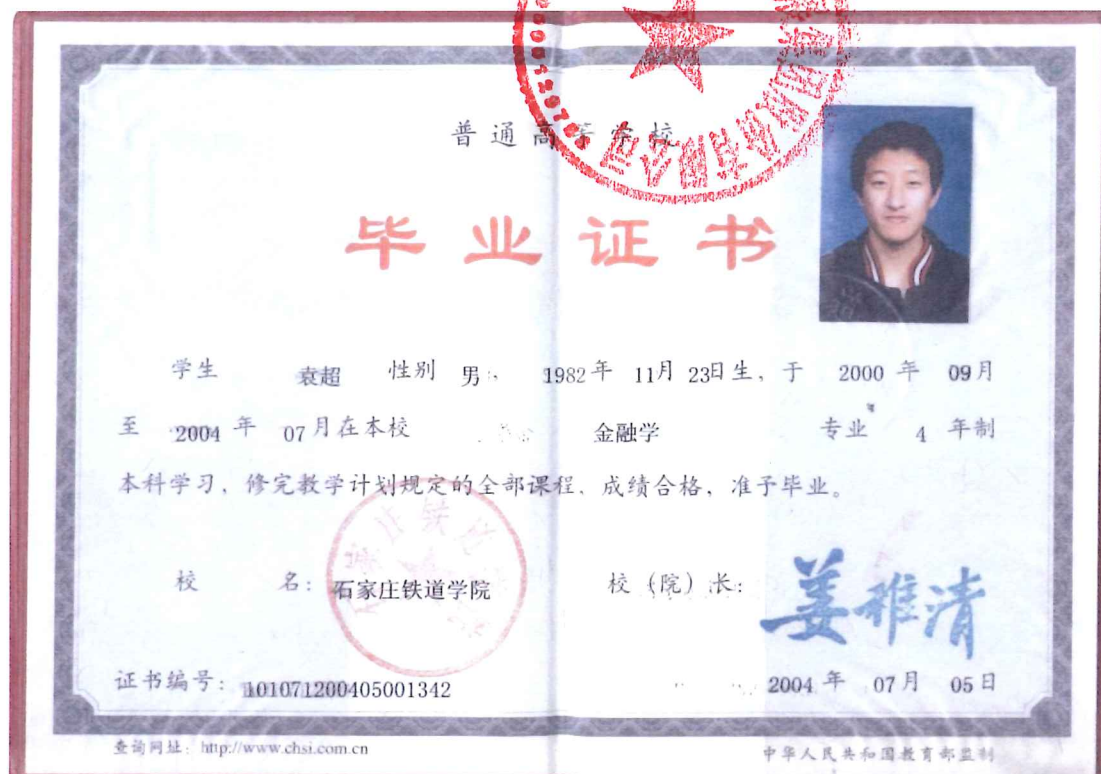 普通高等学校
毕业证书
学生 袁超 性别 男， 1982年 11月 23日生，于 2000 年 09月
至 2004 年 07月在本校 金融学 专业 4 年制
本科学习，修完教学计划规定的全部课程，成绩合格，准予毕业。
校 名：石家庄铁道学院 校（院）长：
证书编号：101071200405001342 2004 年 07月 05日
查询网址：http://www.chsi.com.cn 中华人民共和国教育部监制